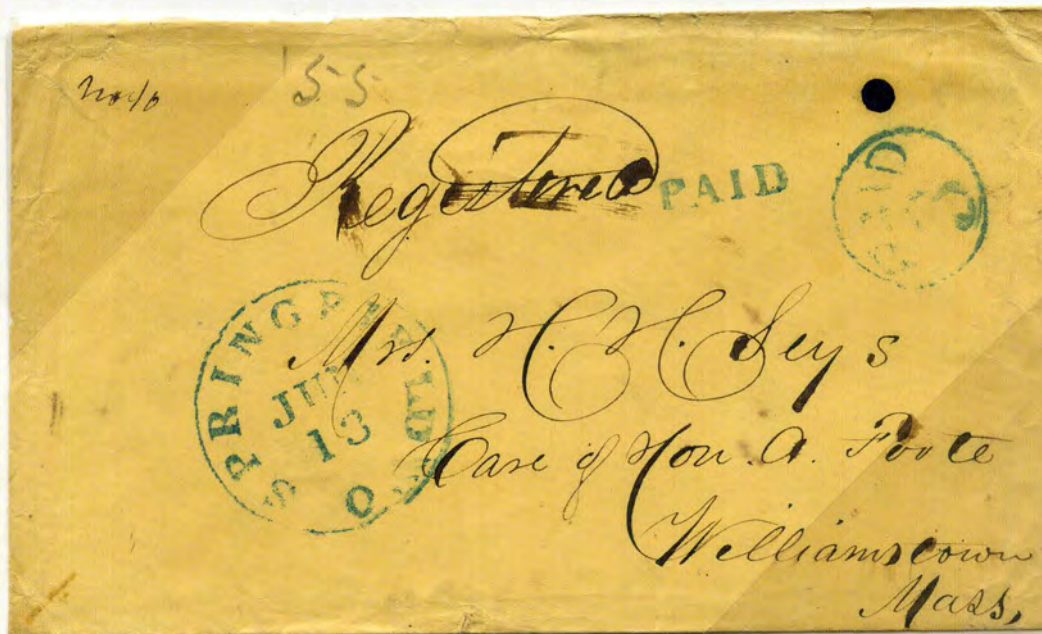 No 10
55
Registered
PAID
PAID 3
SPRINGFIELD O
JUN
13
Mrs. H. H. Seys
Care of Hon. A. Foote
Williamstown
Mass,